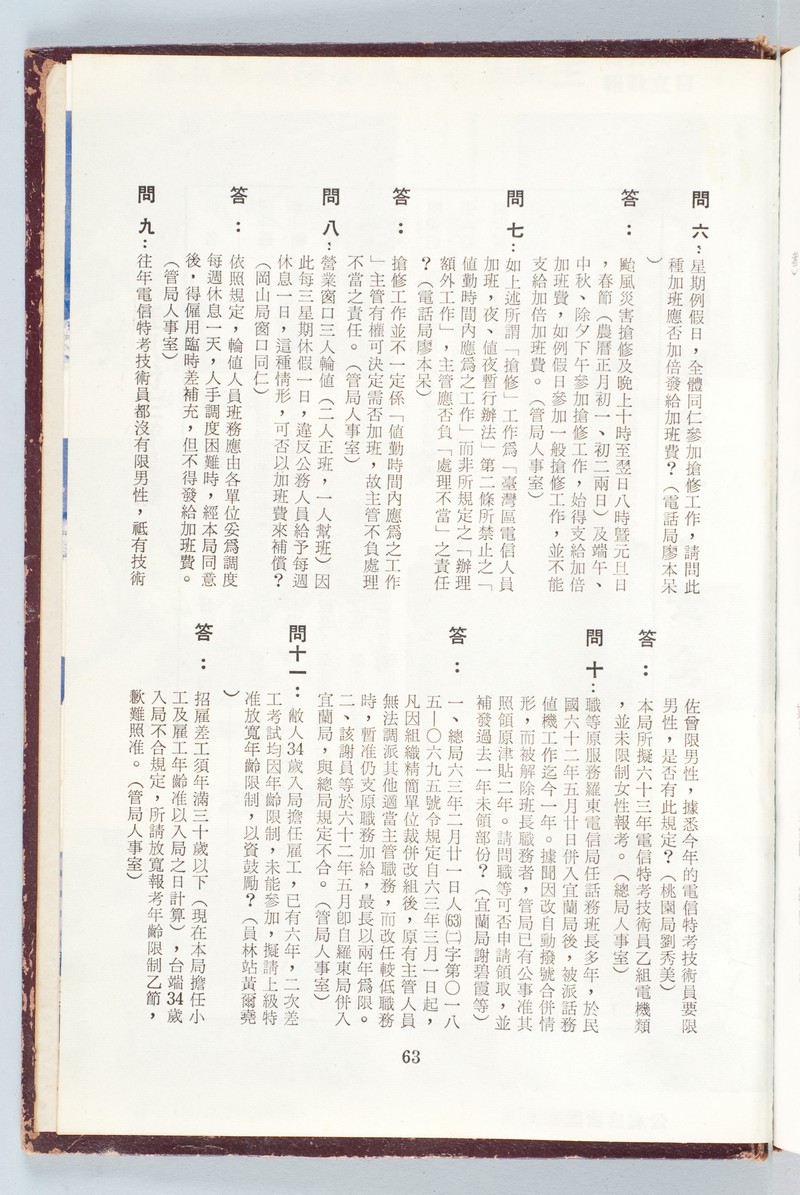 問六：星期例假日，全體同仁參加搶修工作，請問此
種加班應否加倍發給加班費？（電話局廖本呆
）
答：颱風災害搶修及晚上十時至翌日八時暨元旦日
，春節（農曆正月初一、初二兩日）及端午、
中秋、除夕下午參加搶修工作，始得支給加倍
加班費，如例假日參加一般搶修工作，並不能
支給加倍加班費。（管局人事室）
問七：如上述所謂「搶修」工作爲「臺灣區電信人員
加班，夜、値夜暫行辦法」第二條所禁止之「
値勤時間內應爲之工作」而非所規定之「辦理
額外工作」，主管應否負「處理不當」之責任
？（電話局廖本呆）
答：搶修工作並不一定係「値勤時間內應爲之工作
」主管有權可決定需否加班，故主管不負處理
不當之責任。（管局人事室）
問八：營業窗口三人輪値（二人正班，一人幫班）因
此每三星期休假一日，違反公務人員給予每週
休息一日，這種情形，可否以加班費來補償？
（岡山局窗口同仁）
答：依照規定，輪値人員班務應由各單位妥爲調度
每週休息一天，人手調度困難時，經本局同意
後，得僱用臨時差補充，但不得發給加班費。
（管局人事室）
問九：往年電信特考技術員都沒有限男性，祇有技術
佐曾限男性，據悉今年的電信特考技術員要限
男性，是否有此規定？（桃園局劉秀美）
答：本局所擬六十三年電信特考技術員乙組電機類
，並未限制女性報考。（總局人事室）
問十：職等原服務羅東電信局任話務班長多年，於民
國六十二年五月廿日併入宜蘭局後，被派話務
値機工作迄今一年。據聞因改自動撥號合併情
形，而被解除班長職務者，管局已有公事准其
照領原津貼二年。請問職等可否申請領取，並
補發過去一年未領部份？（宜蘭局謝碧霞等）
答：一、總局六三年二月廿一日人㊿㈡字第〇一八
五—〇六九五號令規定自六三年三月一日起，
凡因組織精簡單位裁併改組後，原有主管人員
無法調派其他適當主管職務，而改任較低職務
時，暫准仍支原職務加給，最長以兩年爲限。
二、該謝員等於六十二年五月卽自羅東局併入
宜蘭局，與總局規定不合。（管局人事室）
問十一：敝人34歲入局擔任雇工，已有六年，二次差
工考試均因年齡限制，未能參加，擬請上級特
准放寬年齡限制，以資鼓勵？（員林站黃爾堯
）
答：招雇差工須年滿三十歲以下（現在本局擔任小
工及雇工年齡准以入局之日計算），台端34歲
入局不合規定，所請放寬報考年齡限制乙節，
歉難照准。（管局人事室）
63